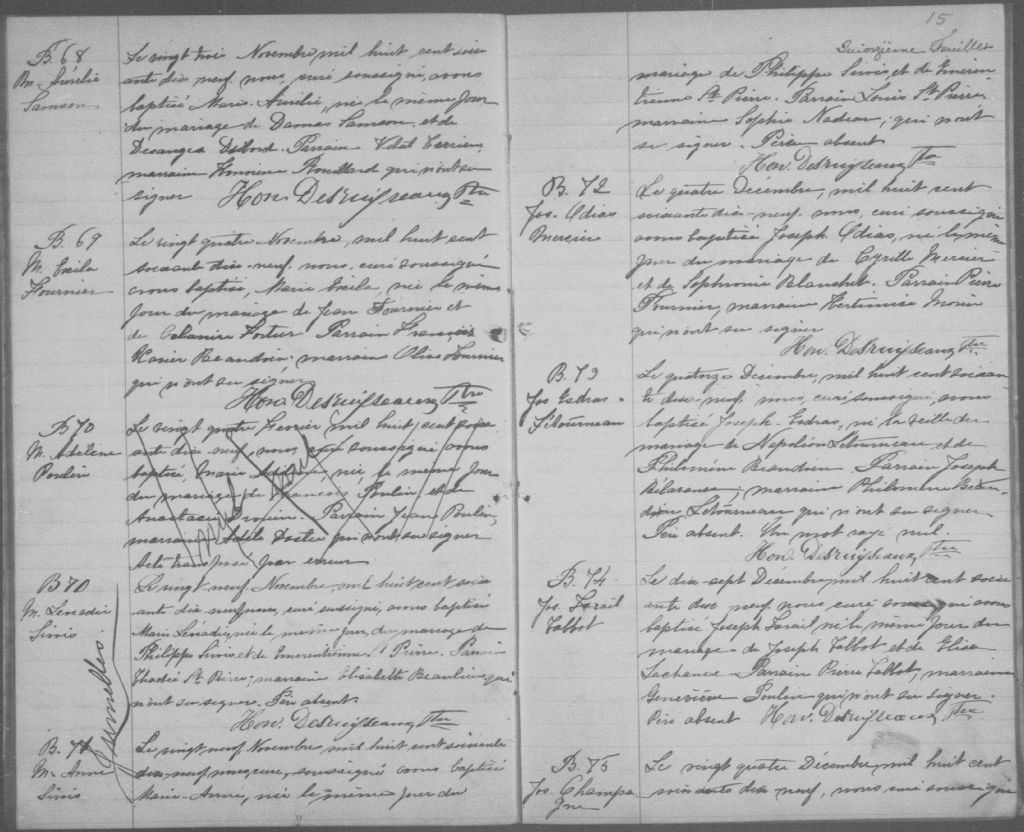 B. 68
M. Aurélie
Samson
Le vingt trois Novembre mil huit cent soix
ante dix neuf, nous, curé soussigné, avons
baptisé Marie Aurélie, née le même jour
du mariage de Damas Samson et de
Desanges Parrain Vital Terrien,
marraine qui n'ont su
signer Hon. Desruisseaux Ptre
B. 69
M. Exila
Fournier
Le vingt quatre Novembre, mil huit cent
soixante dix-neuf, nous, curé soussigné
avons baptisé, Marie Exila, née le même
jour du mariage de Jean Fournier et
de Parrain François
Xavier Beaudoin, marraine Olive Fournier
qui n'ont su signer
Hon. Desruisseaux Ptre
B 70
M. Adeline
Poulin
Le vingt quatre Février mil huit cent soix
ante dix-neuf, nous curé soussigné avons
baptisé, Marie née le même jour
du mariage de François Poulin et de
Anastasie Drouin. Parrain Jean Poulin,
marraine Adèle qui n'ont su signer
Acte transposé par erreur
nul nul
B 70
M. Lénadie
Sinis
Le vingt neuf Novembre, mil huit cent soix
ante dix neuf nous, curé soussigné, avons baptisé
Marie Lénadie, née le même jour, du mariage de
Philippe Sinis et de Emerentienne St Pierre. Parrain
Thadée St Pierre, marraine Elisabeth Beaulieu qui
n'ont su signer. Père absent.
Hon. Desruisseaux Ptre
Jumelles
B. 71
M. Anne
Sinis
Le vingt neuf Novembre, mil huit cent soixante
dix-neuf nous, curé, soussigné avons baptisé
Marie-Anne, née le même jour du
15
Quinzième Feuillet
mariage de Philippe Sinis, et de Emeren
tienne St Pierre. Parrain Louis St Pierre,
marraine Sophie Nadeau, qui n'ont
su signer. Père absent
Hon. Desruisseaux Ptre
B. 72
Jos. Odias
Mercier
Le quatre Décembre, mil huit cent
soixante dix-neuf nous, curé soussigné
avons baptisé Joseph Odias, né le même
jour du mariage de Cyrille Mercier
et de Sophronie Blanchet. Parrain Pierre
Fournier, marraine Morin
qui n'ont su signer
Hon. Desruisseaux, Ptre
B. 73
Jos Esdras
Létourneau
Le quatorze Décembre, mil huit cent soixan
te dix-neuf, nous, curé soussigné, avons
baptisé Joseph-Esdras, né la veille du
mariage de Napoléon Létourneau et de
Philomène Beaudoin. Parrain Joseph
marraine Philomène Beau-
doin Létourneau qui n'ont su signer.
Père absent. Un mot rayé nul.
Hon. Desruisseaux, Ptre
B. 74
Jos. Israïl
Talbot
Le dix-sept Décembre, mil huit cent soix
ante dix neuf nous curé soussigné avons
baptisé Joseph Israïl né le même jour du
mariage de Joseph Talbot et de Elisa
Lachance. Parrain Pierre Talbot, marraine
Geneviève Poulin qui n'ont su signer.
Père absent Hon. Desruisseaux Ptre
B. 75
Jos. Champa
gne
Le vingt quatre Décembre, mil huit cent
soixante dix neuf, nous curé soussigné